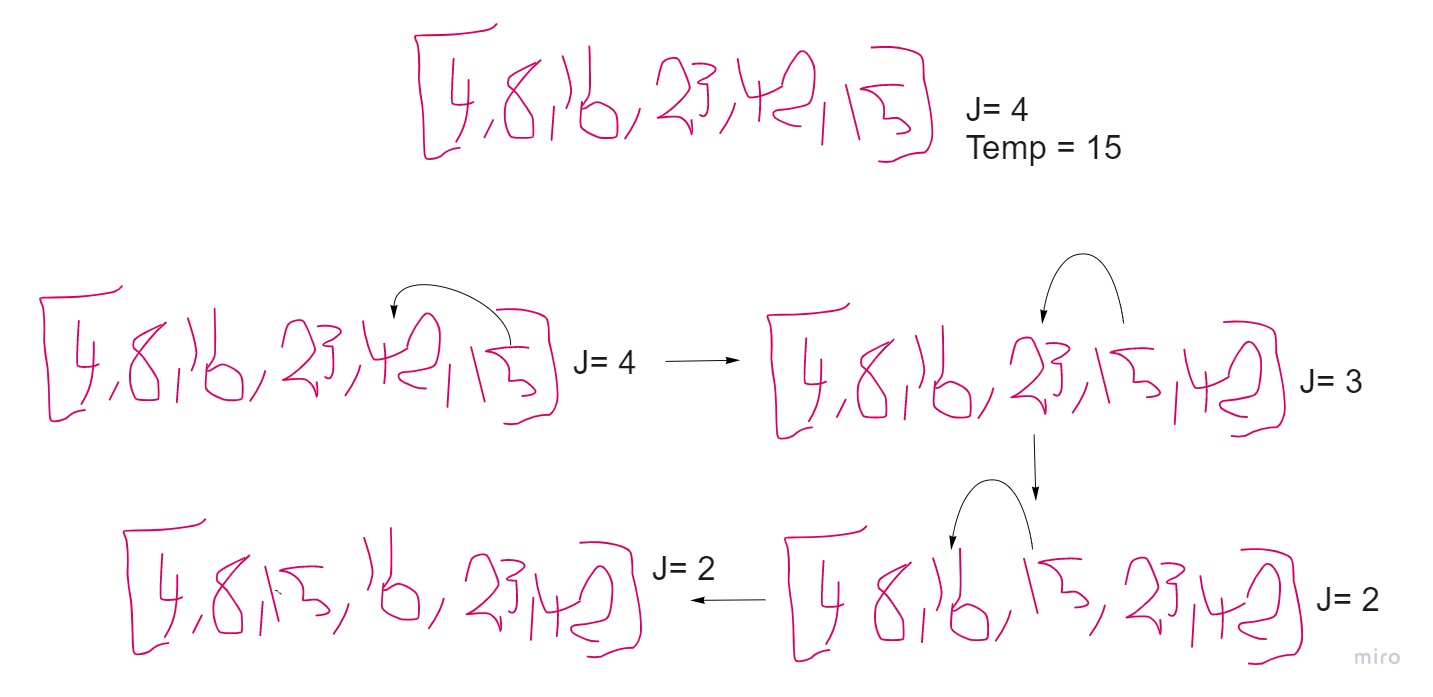 [4,8,16,23,42,15]
J= 4
Temp = 15
[4,8,16,23,42,15] J= 4
[4,8,16,23,15,42] J= 3
[4,8,16,15,23,42] J= 2
[4,8,15,16,23,42] J= 2
miro